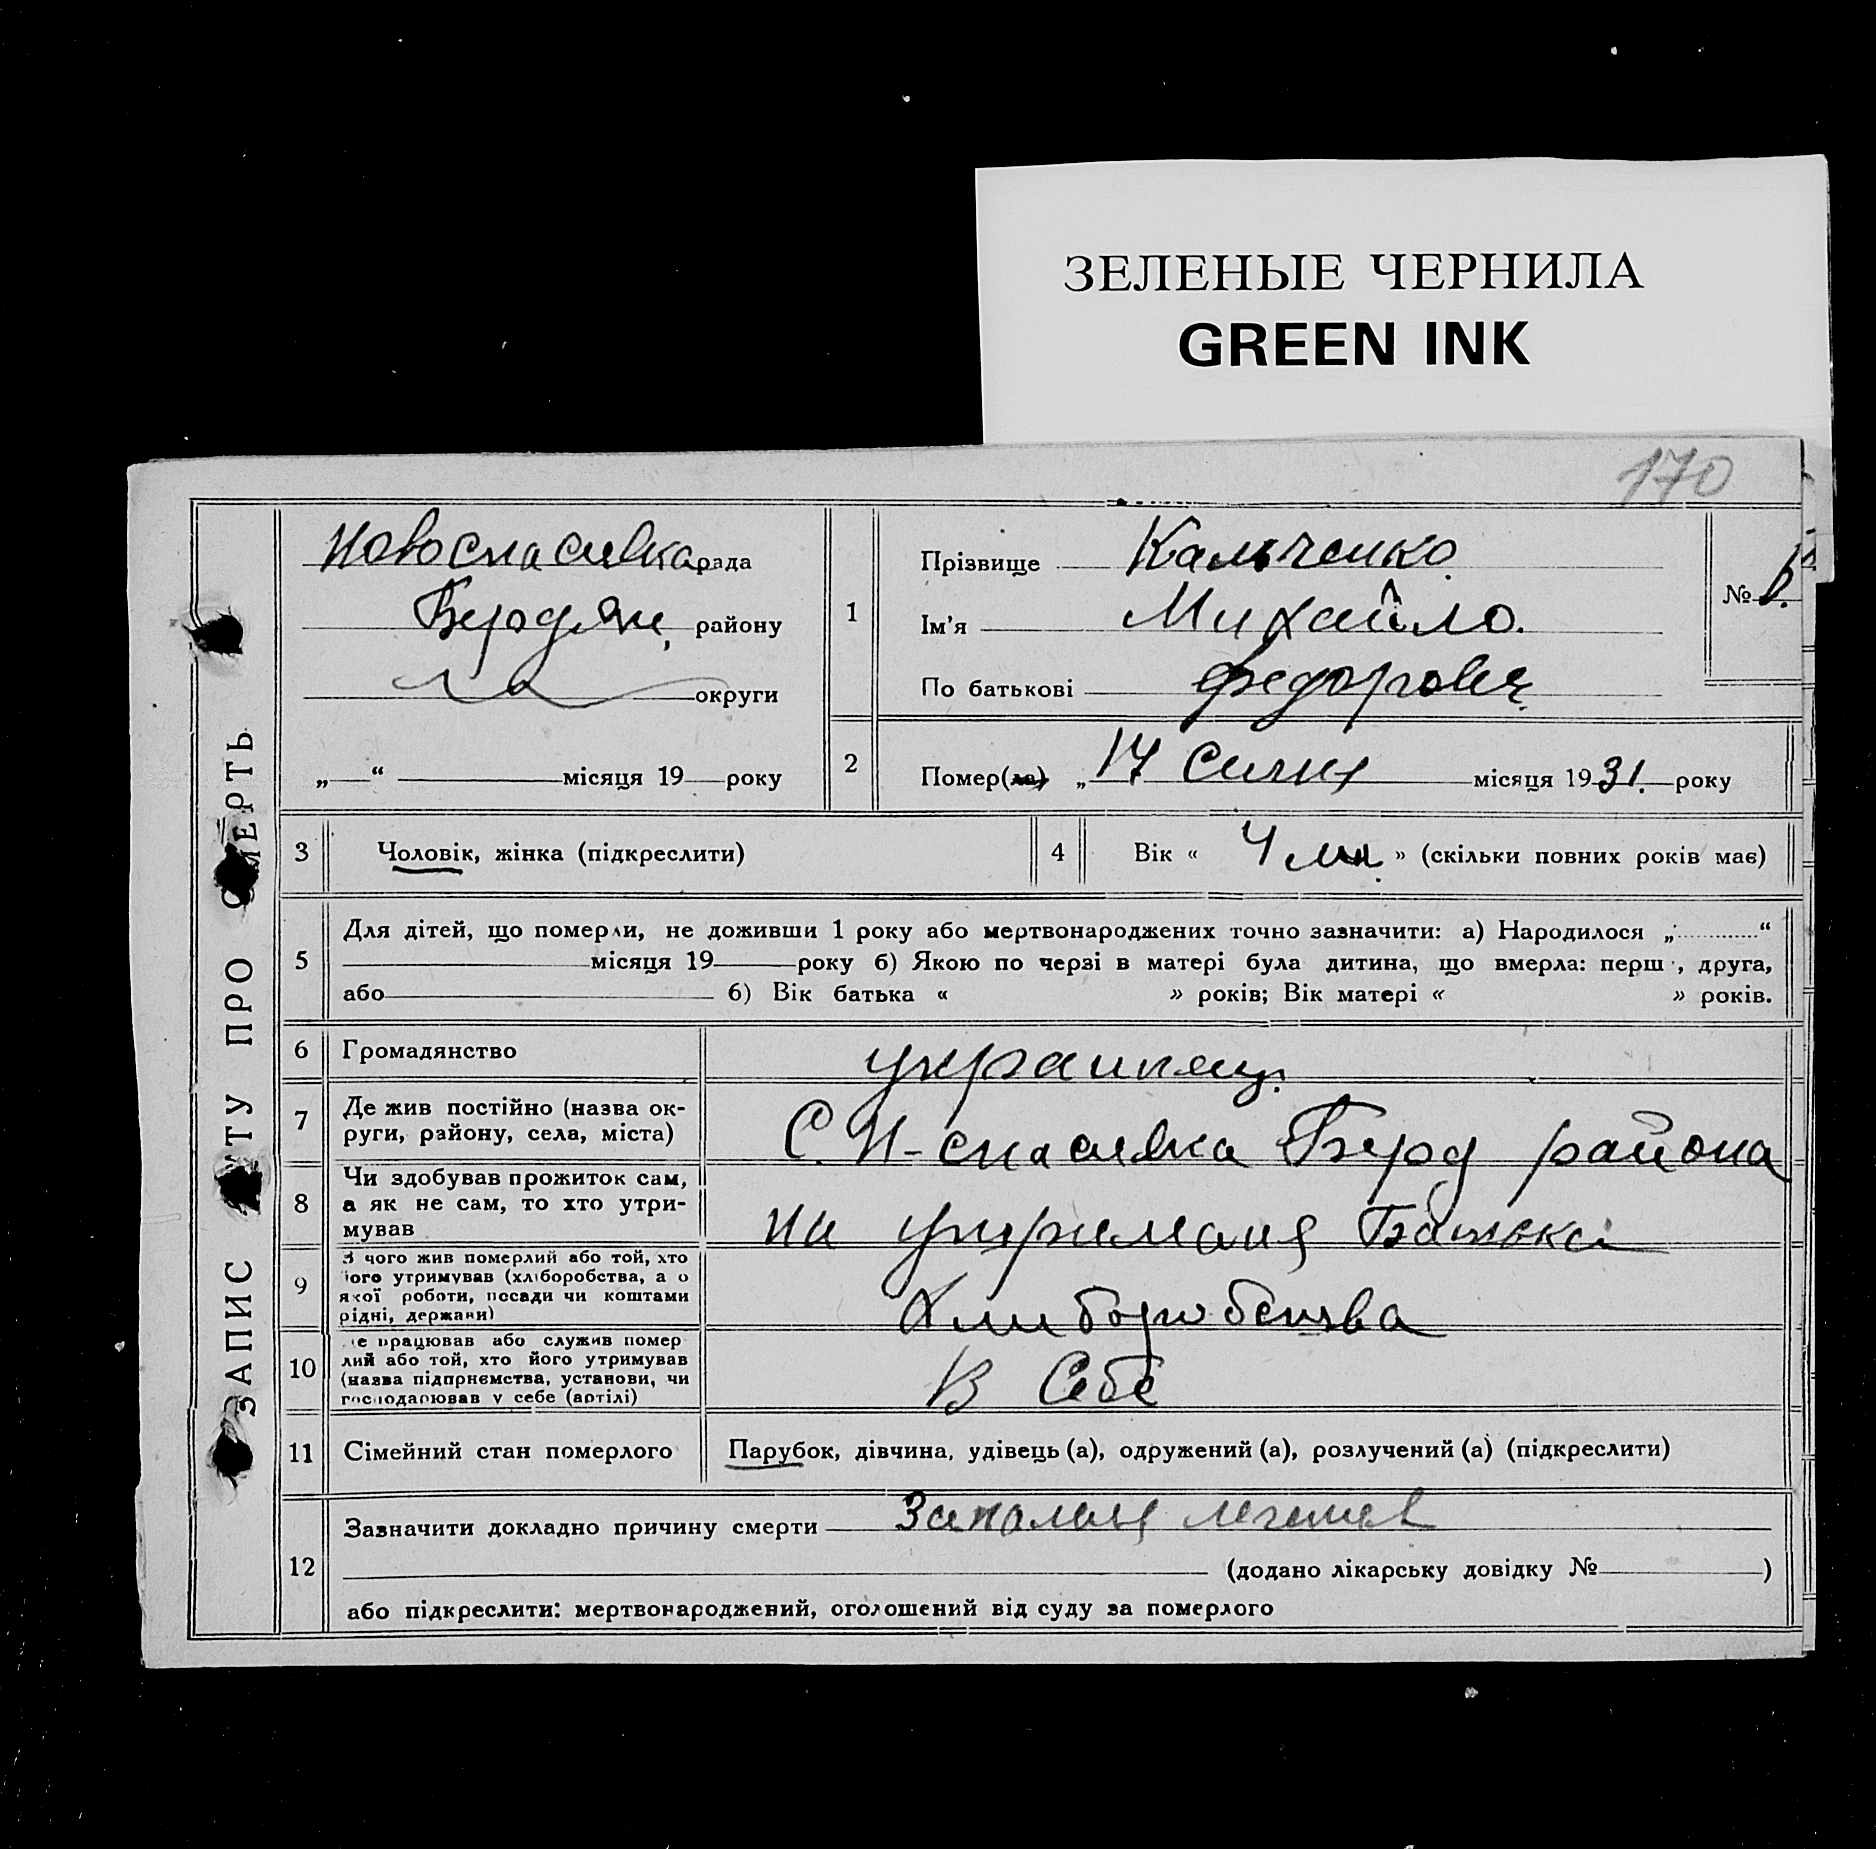 ЗЕЛЕНЫЕ ЧЕРНИЛА
GREEN INK
170
ЗАПИС АКТУ ПРО СМЕРТЬ
Новоспасивка рада
Бердян, району
округи
„ “ місяця 19 року
1
Прізвище Кальченко
Ім'я Михайло.
По батькові Федорович
№ 6.
2
Помер(ла) „ 17 Сичня місяця 1931. року
3 Чоловік, жінка (підкреслити)
4 Вік « 4 міс. » (скільки повних років має)
5
Для дітей, що померли, не доживши 1 року або мертвонароджених точно зазначити: а) Народилося „ “
місяця 19 року б) Якою по черзі в матері була дитина, що вмерла: перш , друга,
або б) Вік батька « » років; Вік матері « » років.
6 Громадянство украинец.
7 Де жив постійно (назва ок-
руги, району, села, міста)
С. Н-спасивка Берд района
8 Чи здобував прожиток сам,
а як не сам, то хто утри-
мував
на утриманя Батька
9 З чого жив померлий або той, хто
його утримував (хліборобства, а о
якої роботи, посади чи коштами
рідні, держави)
Хлиборобства
10 Де працював або служив помер
лий або той, хто його утримував
(назва підпрнємства, установи, чи
господарював у себе (артілі)
В Себе
11 Сімейний стан померлого Парубок, дівчина, удівець (а), одружений (а), розлучений (а) (підкреслити)
12
Зазначити докладно причину смерти Запаленя легенев
(додано лікарську довідку № )
або підкреслити: мертвонароджений, оголошений від суду за померлого